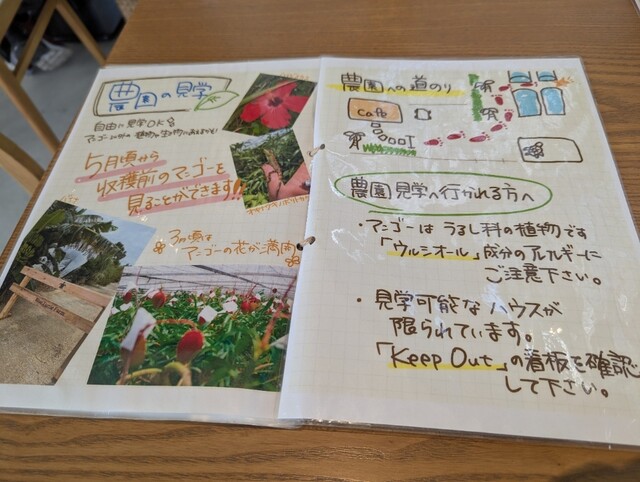 農園の見学
自由に見学OK
5月頃から
収穫前のマンゴーを
見ることができます!!
3月頃は
マンゴーの花が満開
農園への道のり
Cafe
農園見学へ行かれる方へ
・マンゴーは うるし科の植物です
「ウルシオール」成分のアレルギーに
ご注意下さい。
・見学可能な ハウスが
限られています。
「Keep Out」の看板を確認
して下さい。